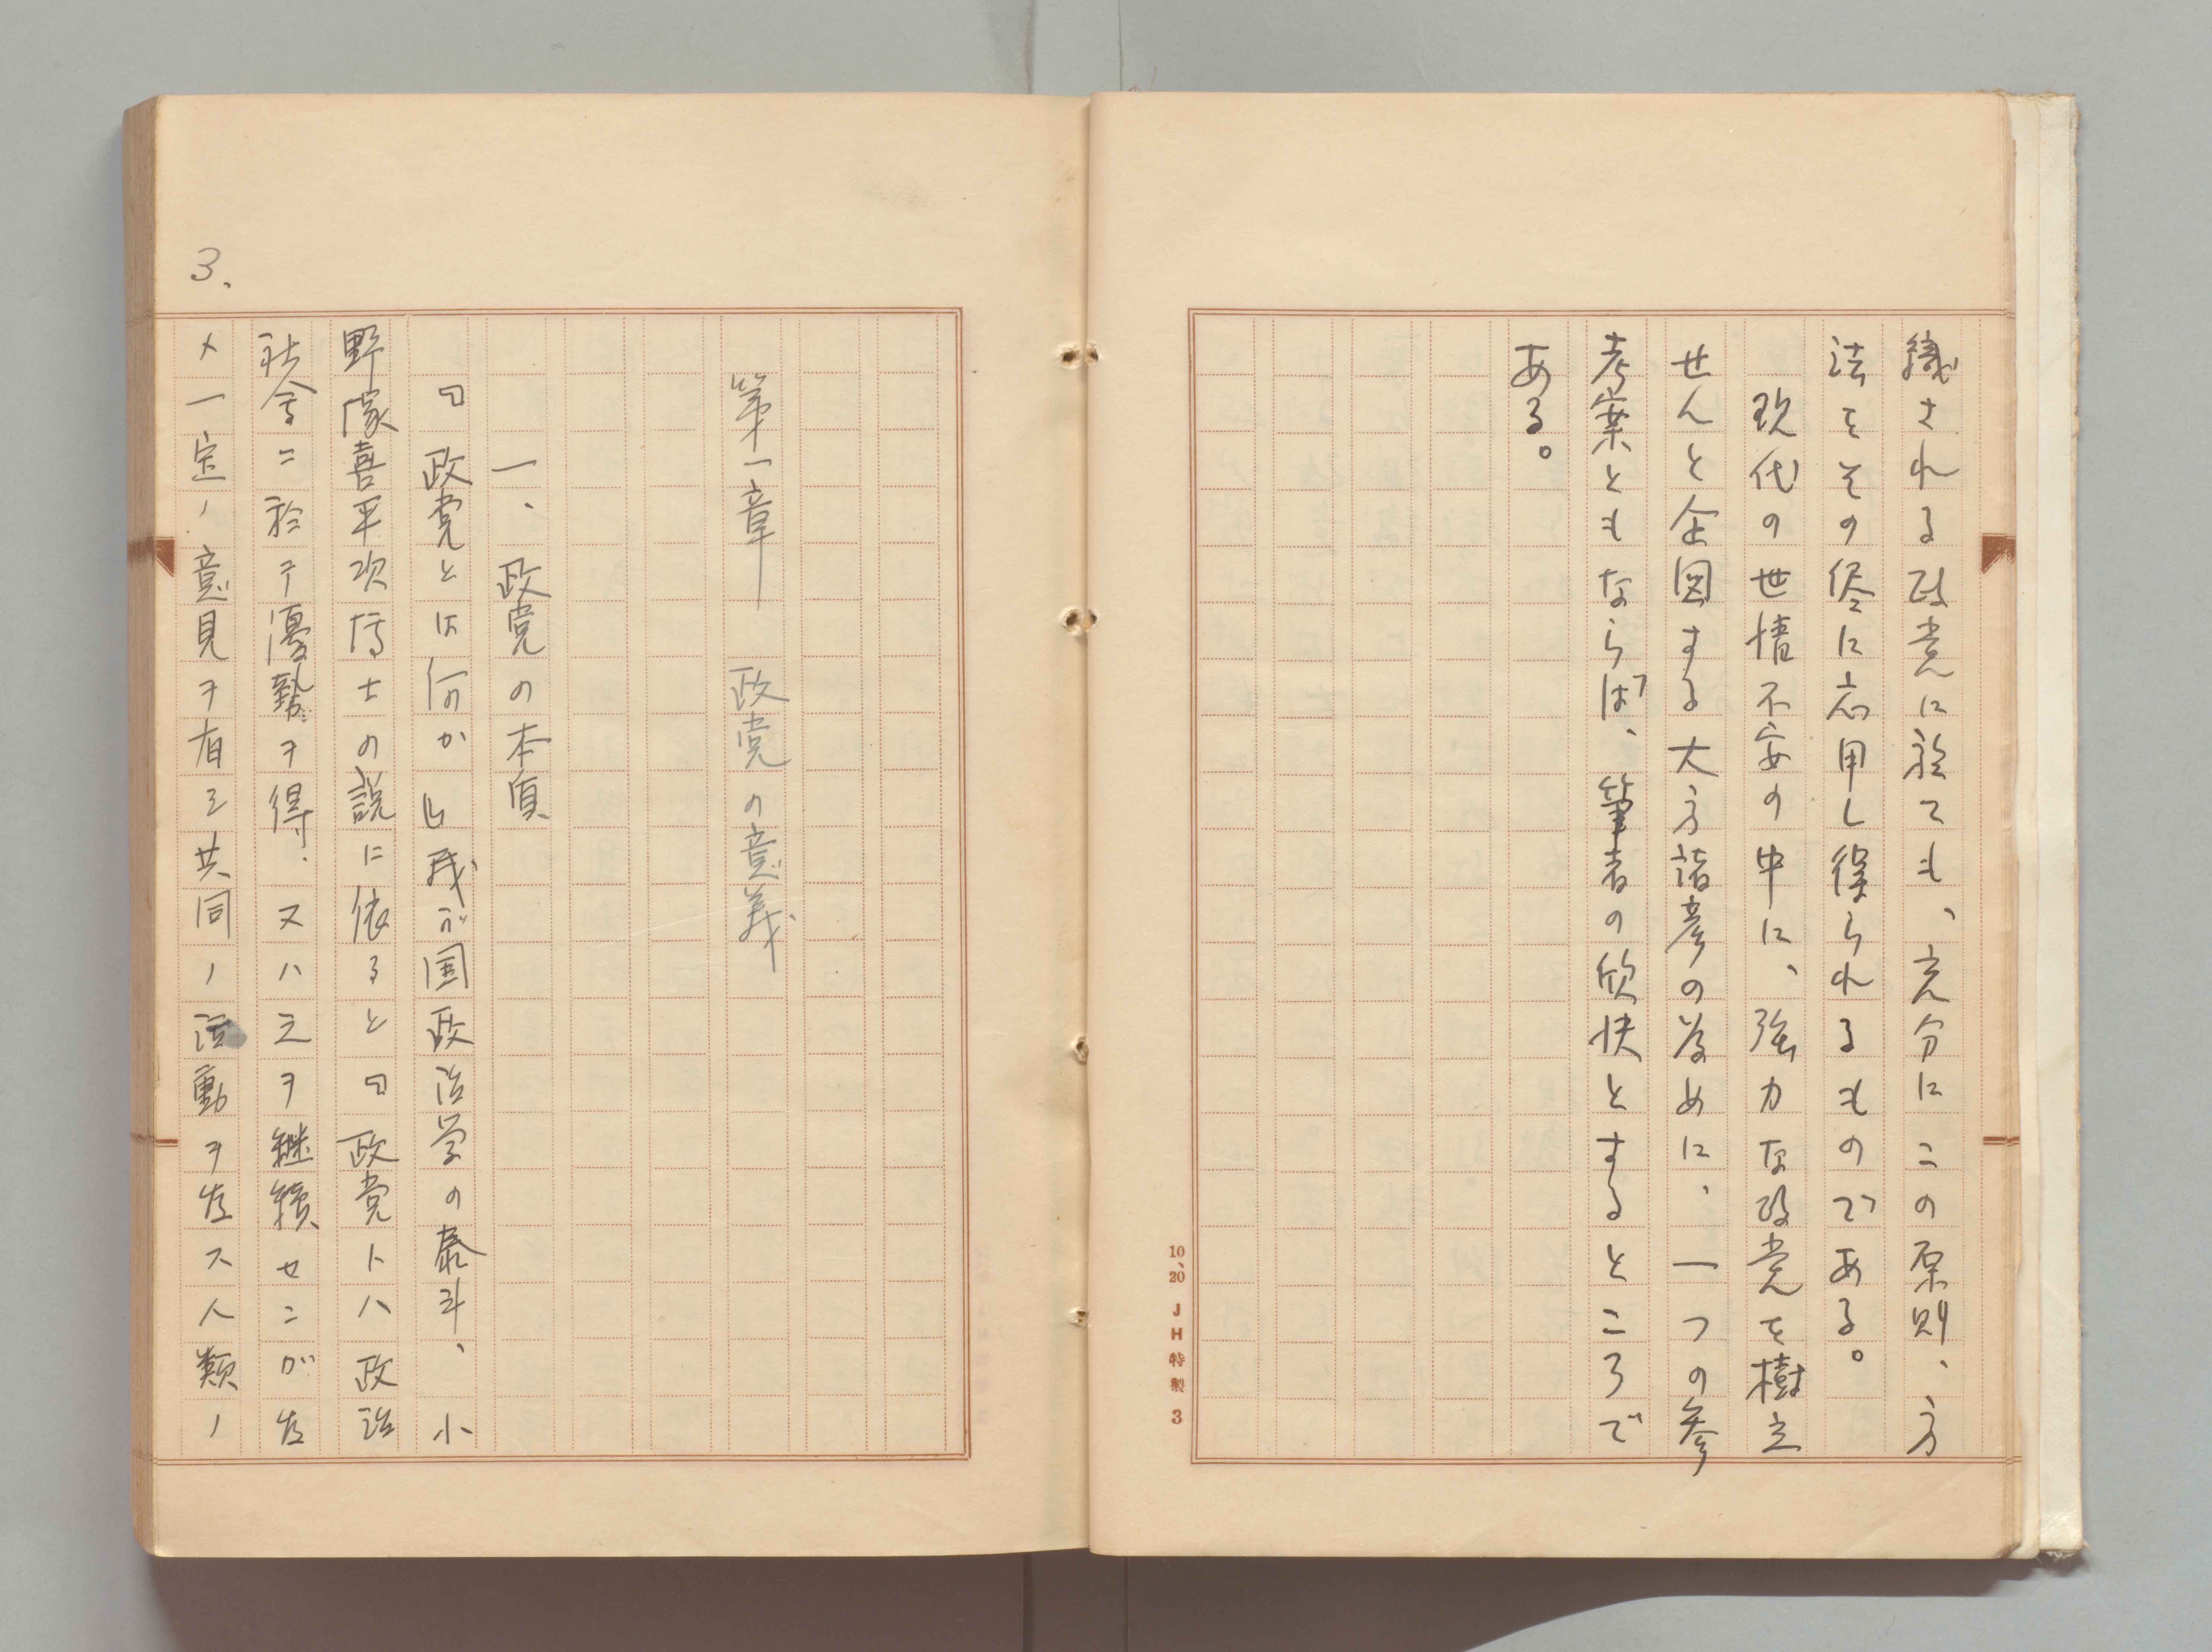 織される政党に於ても、充分にこの原則、方
法をその侭に応用し得られるものである。
現代の世情不安の中に、強力な政党を樹立
せんと企図する大方諸彦の為めに、一つの参
考案ともならば、筆者の欣快とするところで
ある。
10、20 JH特製 3
第一章 政党の意義
一、政党の本質
「政党とは何か」我が国政治学の泰斗、小
野塚喜平次博士の説に依ると「政党トハ政治
社会ニ於テ優勢ヲ得、又ハ之ヲ継続センガ為
メ一定ノ意見ヲ有シ共同ノ活動ヲ為ス人類ノ
3.